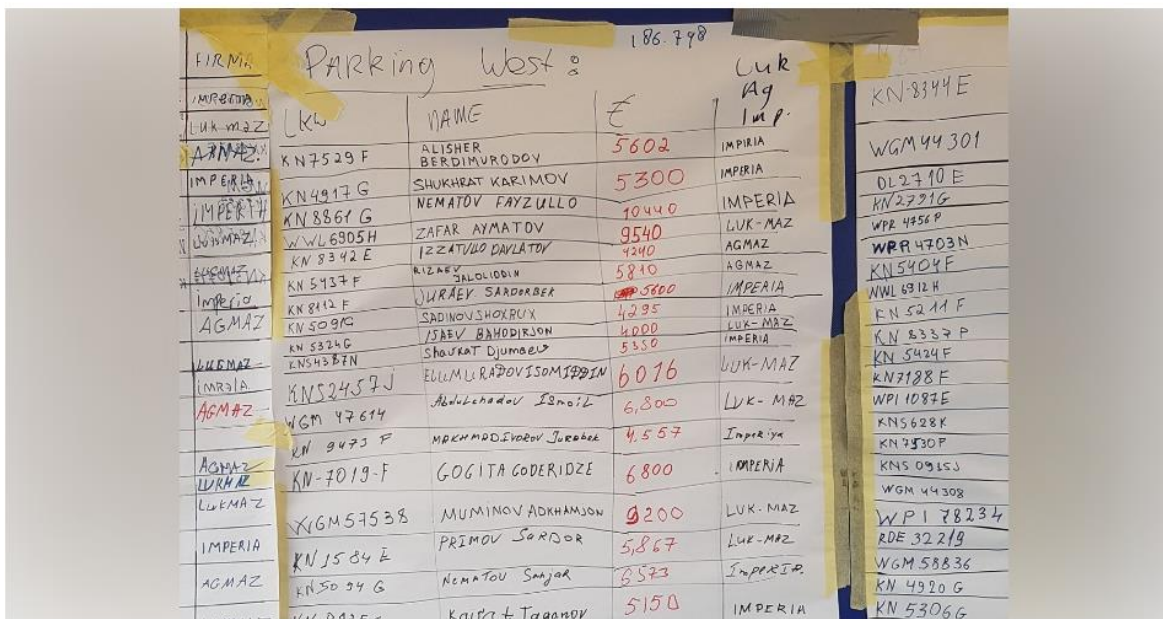 FIRMA
IMPERIA
LUK maZ
AXMAZ.
IMPERIA
IMPERIA
Imperia
AGMAZ
LUGMAZ
AGMAZ
AGMAZ
LUKMAZ
IMPERIA
AGMAZ
186.798
PARKing West:
Luk
Ag
Imp.
LKW NAME €
KN7529F ALISHER BERDIMURODOV 5602 IMPIRIA
KN4917G SHUKHRAT KARIMOV 5300 IMPERIA
KN8861G NEMATOV FAYZULLO 10440 IMPERIA
WWL6905H ZAFAR AYMATOV 9540 LUK-MAZ
KN 8342 E IZZATULLO DAVLATOV 4240 AGMAZ
KN 5437 F RIZAEV JALOLIDDIN 5810 AGMAZ
KN 8112 F JURAEV SARDORBEK 5600 IMPERIA
KN 5091G SADINOV SHOXRUX 4295 IMPERIA
KN 5324G ISAEV BAHODIRJON 4000 LUK-MAZ
KNS4387N ShavKaT Djumaev 5350 IMPERIA
KNS2457J ELLMURADOV ISOMIDDIN 6016 LUK-MAZ
WGM 47614 Ismoil 6,800 LUK-MAZ
KN 9473 F MAKHMADIYOROV Jurabek 4.557 Imperiya
KN-7019-F GOGITA GODERIDZE 6800 IMPERIA
WGM57538 MUMINOV ADKHAMJON 9200 LUK-MAZ
KN 1584 E PRIMOV SARDOR 5,867 LUK-MAZ
KN5094 G NEMATOV Sanjar 6573 ImpERIA.
Taganov 5150 IMPERIA
KN-8344E
WGM44301
DL2710E
KN2791G
WPR 4756P
WPR 4703N
KN5404F
WWL6912H
KN5211F
KN 8337 P
KN 5424F
KN7188F
WPI 1087E
KNS628K
KN7530P
KNS 0965J
WGM 44308
WPI 78234
RDE 32219
WGM58836
KN 4920 G
KN 5306G